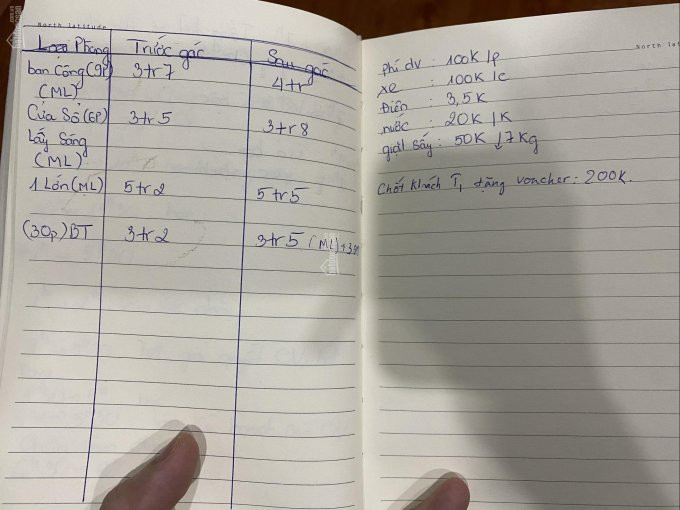 North latitude
Loại Phòng Trước gác Sau gác
ban Công (9P) 3tr7 4tr
(ML)
Cửa Sổ (6P) 3tr5 3tr8
Lấy Sáng
(ML)
1 Lớn (ML) 5tr2 5tr5
(30p) BT 3tr2 3tr5 (ML)
North lati
phí dv : 100K/p
xe : 100K/c
Điện : 3,5K
nước : 20K/K
giặt sấy : 50K ↓7Kg
Chốt khách T1 tặng voncher : 200K.